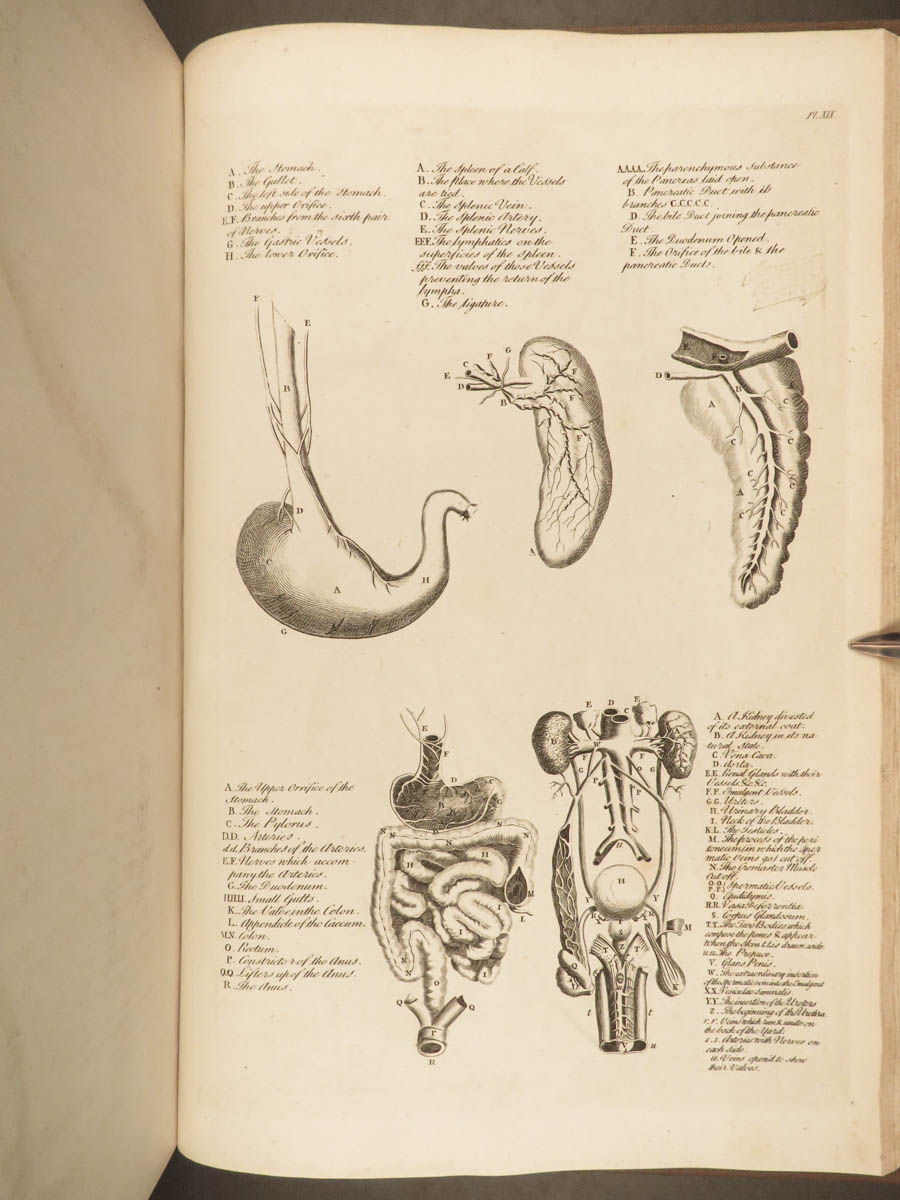 Pl. XIX.
A. The Stomach.
B. The Gullet.
C. The left side of the Stomach.
D. The upper Orifice.
E.F. Branches from the sixth pair
of Nerves.
G. The Gastric Vessels.
H. The lower Orifice.
A. The Spleen of a Calf.
B. The place where the Vessels
are tied.
C. The Splenic Vein.
D. The Splenic Artery.
E. The Splenic Nerves.
F.F.F. The lymphatics on the
superficies of the Spleen.
fff. The valves of those Vessels
preventing the return of the
lympha.
G. The Ligature.
A.A.A.A. The parenchymous Substance
of the Pancreas laid open.
B. Pancreatic Duct with its
branches C.C.C.C.C.
D. The bile Duct joining the pancreatic
Duct.
E. The Duodenum Opened.
F. The Orifice of the bile & the
pancreatic Ducts.
F
E
B
D
C
A
H
G
G
F
C
E
D
B
F
F
F
A
E
F
D
B
A
A
C
C
C
A
C
C
C
A. The Upper Orrifice of the
Stomach.
B. The Stomach.
C. The Pylorus.
D.D. Arteries.
d.d. Branches of the Arteries.
E.F. Nerves which accom-
pany the Arteries.
G. The Duodenum.
H.H.I.I. Small Gutts.
K. The Valve in the Colon.
L. Appendicle of the Caecum.
M.N. Colon.
O. Rectum.
P. Constrictor of the Anus.
Q.Q. Lifters up of the Anus.
R. The Anus.
E
F
D
C
B
G
N
N
D
N
N
N
H
H
M
I
I
L
N
N
I
O
Q
Q
P
R
E
D
C
E
B
W
F
F
C
P
O
G
P
u
H
Y
Y
R
R
M
S
T
Z
T
Q
K
t
t
V
u
A. A Kidney divested
of its external coat.
B. A Kidney in its na
tural State.
C. Vena Cava.
D. Aorta.
E.E. Renal Glands with their
Vessels &c &c.
F.F. Emulgent Vessels.
G.G. Ureters.
H. Urinary Bladder.
I. Neck of the Bladder.
K.L. The Testicles.
M. The process of the peri
toneum (in which the Sper
matic Veins go) cut off.
N. The Cromaster Muscle
Cut off.
O.O. P.P. Spermatic Vessels.
Q. Epididymis.
R.R. Vasa Deferentia.
S. Corpus Glandosum.
T.T. The Two Bodies which
compose the penis & appear
When the Skin t.t. is drawn aside.
u.u. The Prepuce.
V. Glans Penis.
W. The extraordinary insertion
of the Spermatic vein into the Emulgent
X.X. Vesiculae Seminalis.
Y.Y. The insertion of the Ureters
Z. The beginning of the Urethra
r. r. Veins which run & unite on
the back of the Yard.
s. s. Arteries with Nerves on
each Side.
u. Veins open'd to show
their Valves.